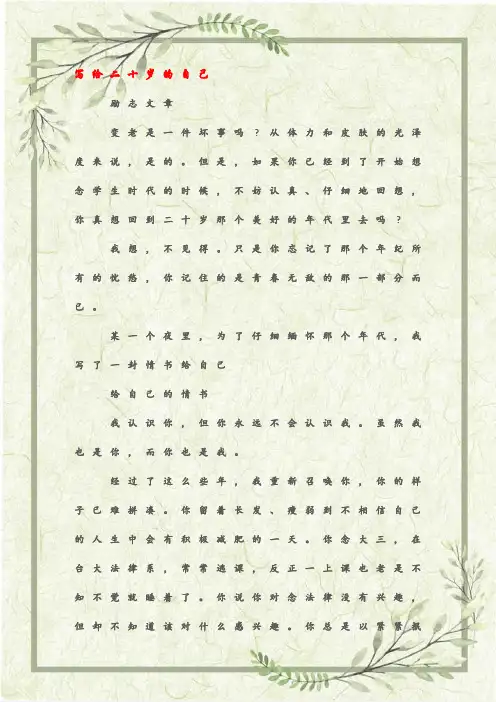 写给二十岁的自己
励志文章
变老是一件坏事吗?从体力和皮肤的光泽
度来说,是的。但是,如果你已经到了开始想
念学生时代的时候,不妨认真、仔细地回想,
你真想回到二十岁那个美好的年代里去吗?
我想,不见得。只是你忘记了那个年纪所
有的忧愁,你记住的是青春无敌的那一部分而
已。
某一个夜里,为了仔细缅怀那个年代,我
写了一封情书给自己
给自己的情书
我认识你,但你永远不会认识我。虽然我
也是你,而你也是我。
经过了这么些年,我重新召唤你,你的样
子已难拼凑。你留着长发、瘦弱到不相信自己
的人生中会有积极减肥的一天。你念大三,在
台大法律系,常常逃课,反正一上课也老是不
知不觉就睡着了。你说你对念法律没有兴趣,
但却不知道该对什么感兴趣。你总是以紧紧抿